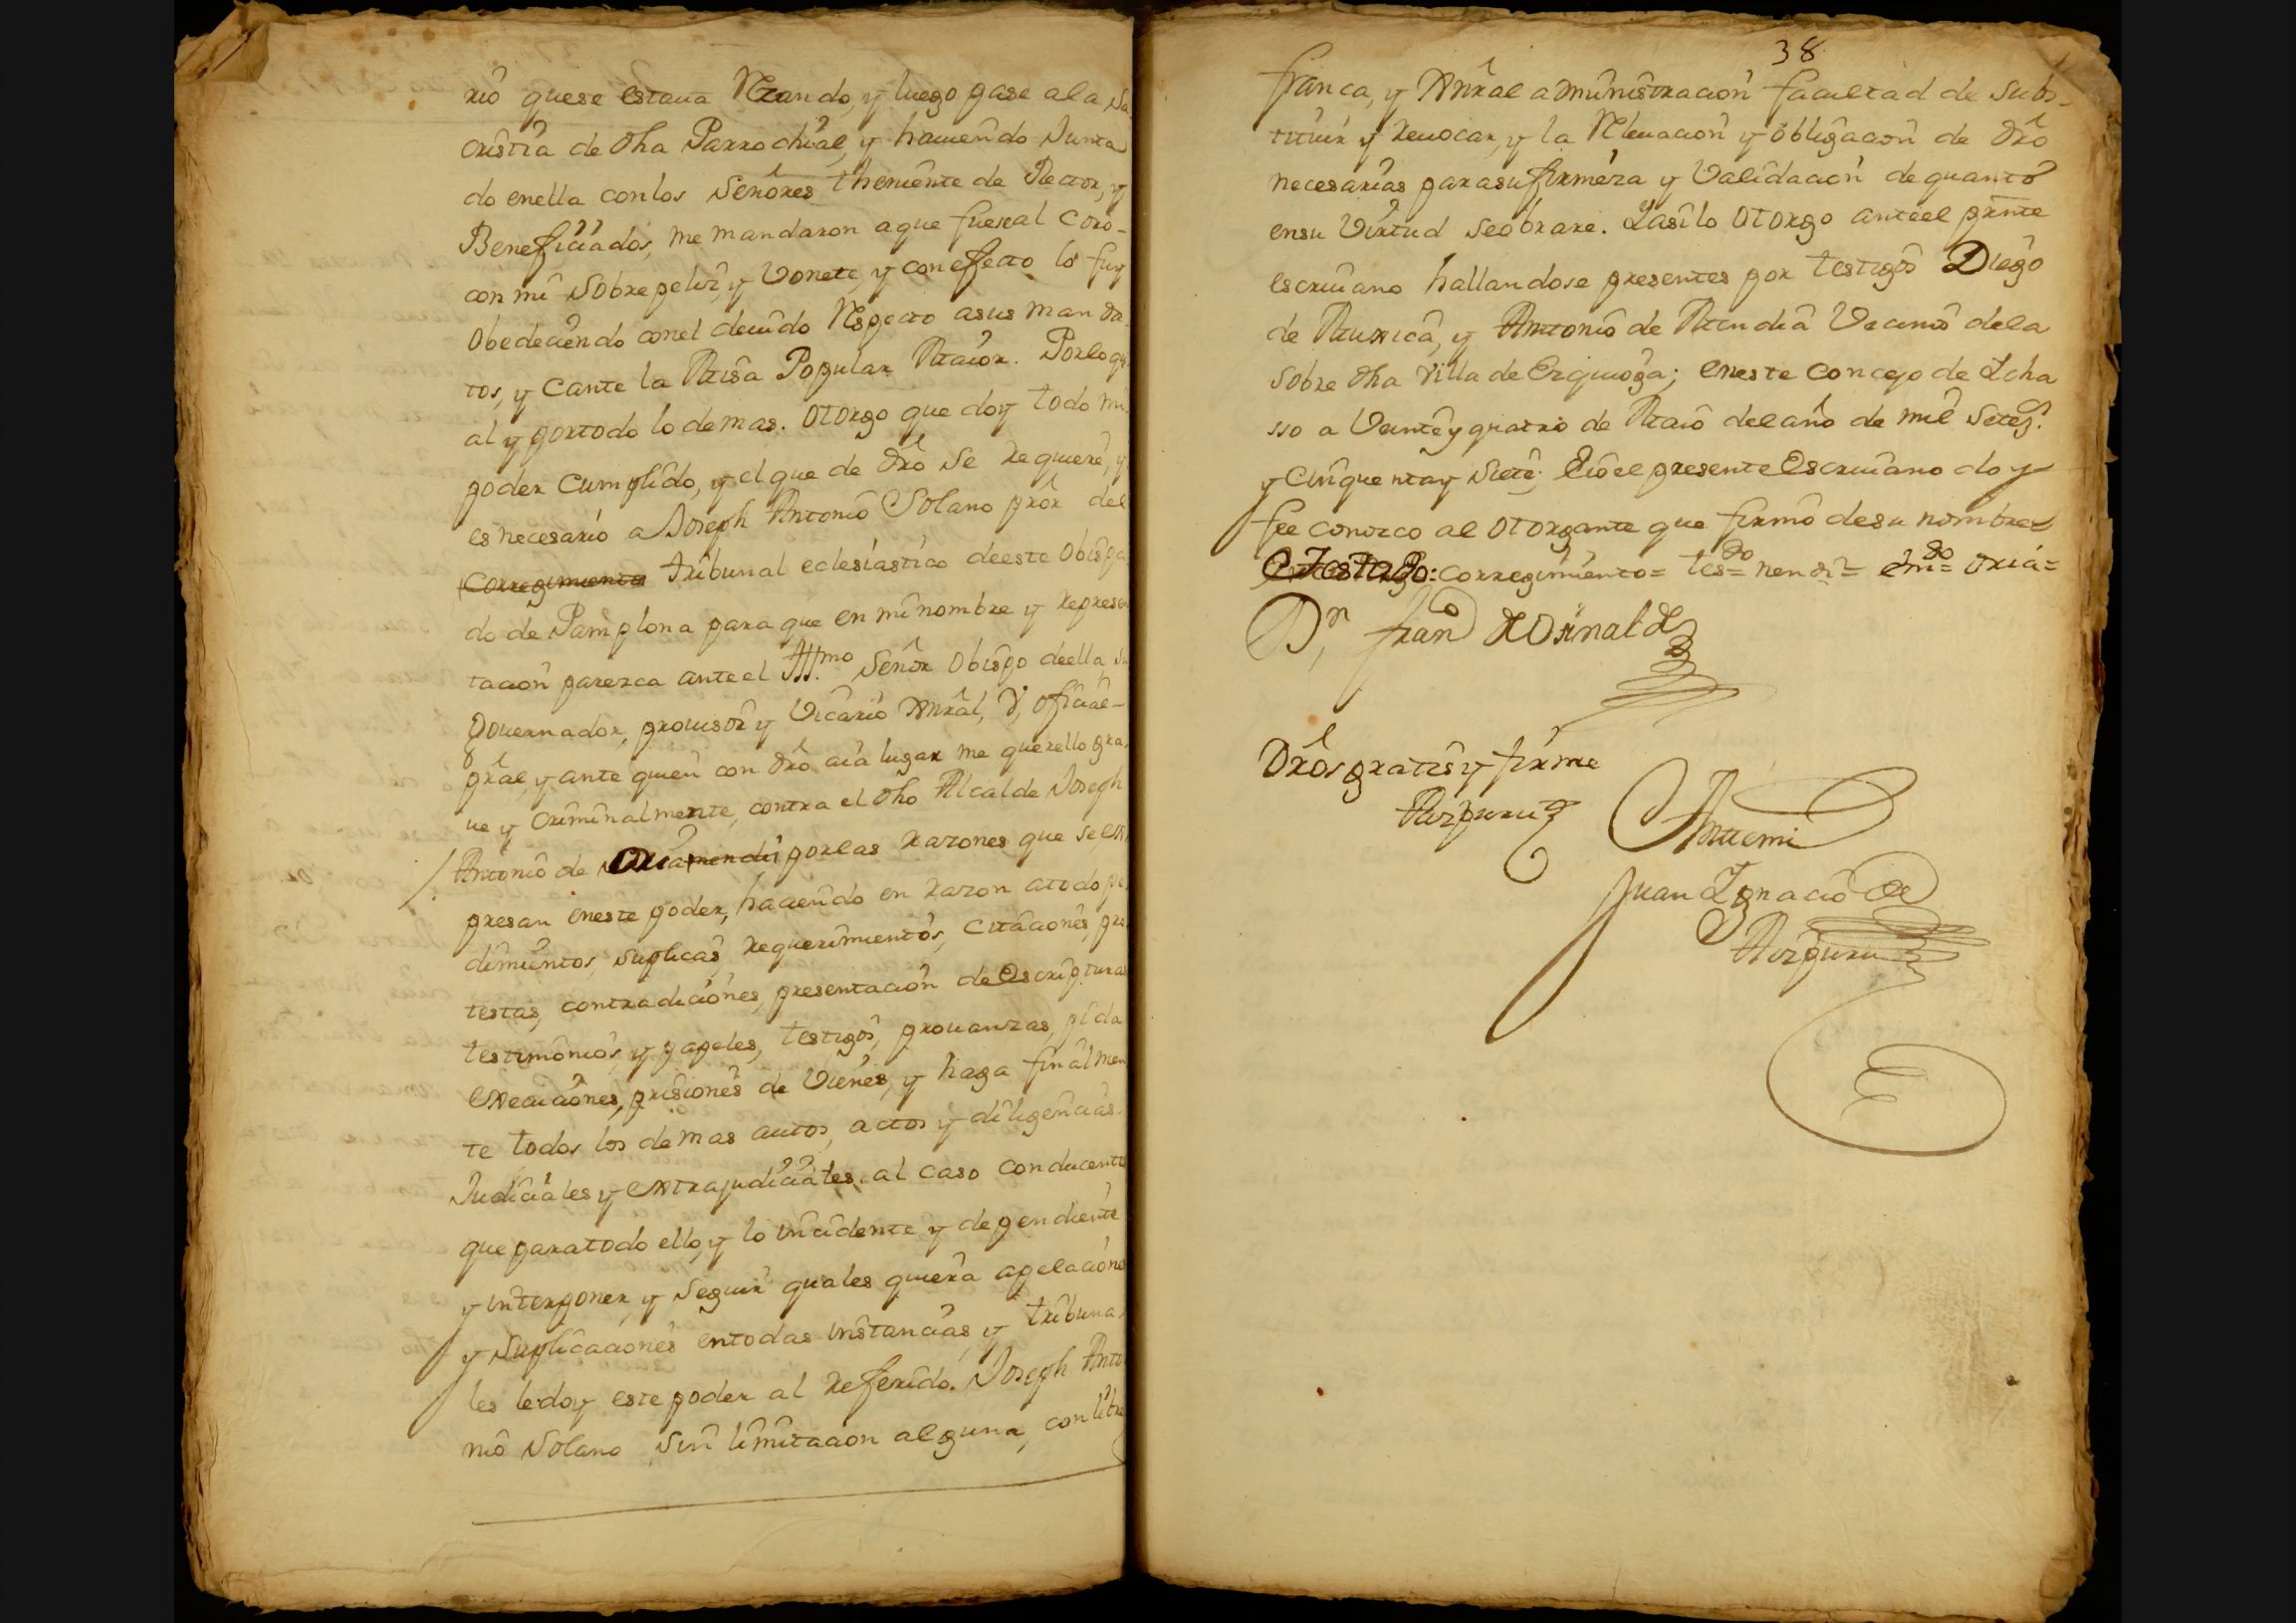 rio que se estaua Rezando, y luego pase a la Sa
cristia de dha Parrochial, y hauiendo Junta
do en ella con los Señores theniente de Rector, y
Beneficiados, me mandaron a que fuese al Coro
con mi Sobrepeliz, y Vonete, y con effecto lo fuy
Obedeciendo con el deuido Respecto a sus manda
tos, y Cante la Misa Popular Maior. Por lo qu
al y por todo lo demas. Otorgo que doy todo mi
poder Cumplido, y el que de dro Se requiere, y
es necesario a Joseph Antonio Solano pror del
Corregimiento Tribunal eclesiastico de este Obispa
do de Pamplona para que en mi nombre y represen
tacion parezca ante el Illmo Señor Obispo de ella su
Gouernador, prouisor y Vicario Gnral, V, oficial
pral, y ante quien con dro aia lugar me querello gra
ue y Criminalmente, contra el dho Alcalde Joseph
Antonio de por las razones que se ess
presan en este poder, haciendo en razon a todo pe
dimientos, suplicas, requerimientos, citaciones, pro
testas, contradiciones, presentacion de Escripturas
testimonios y papeles, testigos, prouanzas, pida
execuciones, prisiones de Vienes, y haga finalmen
te todos los demas autos, actos y diligencias
Judiciales y extrajudiciales al caso conducente
que para todo ello, y lo incidente y dependiente
y interponer, y Seguir quales quiera apelacione
y Suplicaciones en todas instancias, y tribuna
les le doy este poder al referido Joseph Anto
nio Solano, Sin limitacion alguna, con libre
38
franca, y Gnral administracion facultad de Subs
tituir y reuocar, y la Releuacion y obligacion de dro
necesarias para su firmeza y Validacion de quanto
en su Virtud Se obrare. Y asi lo Otorgo ante el prnte
escriuano hallandose presentes por testigos Diego
de Muxica, y Antonio de Mendia Vecinos de la
Sobre dha Villa de Ezquioga; en este Concejo de Icha
sso a Veinte y quatro de Maio del año de mil Setez.
y Cinquenta y Siete; E io el presente Escriuano doy
fee conozco al Otorgante que firmo de su nombre
Testado: corregimiento= tesdo= nendi= emdo= oria=
Dn, Fran
Dros gratis y firme
Aizpuru
Ante mi
Juan Ignacio de
Aizpuru